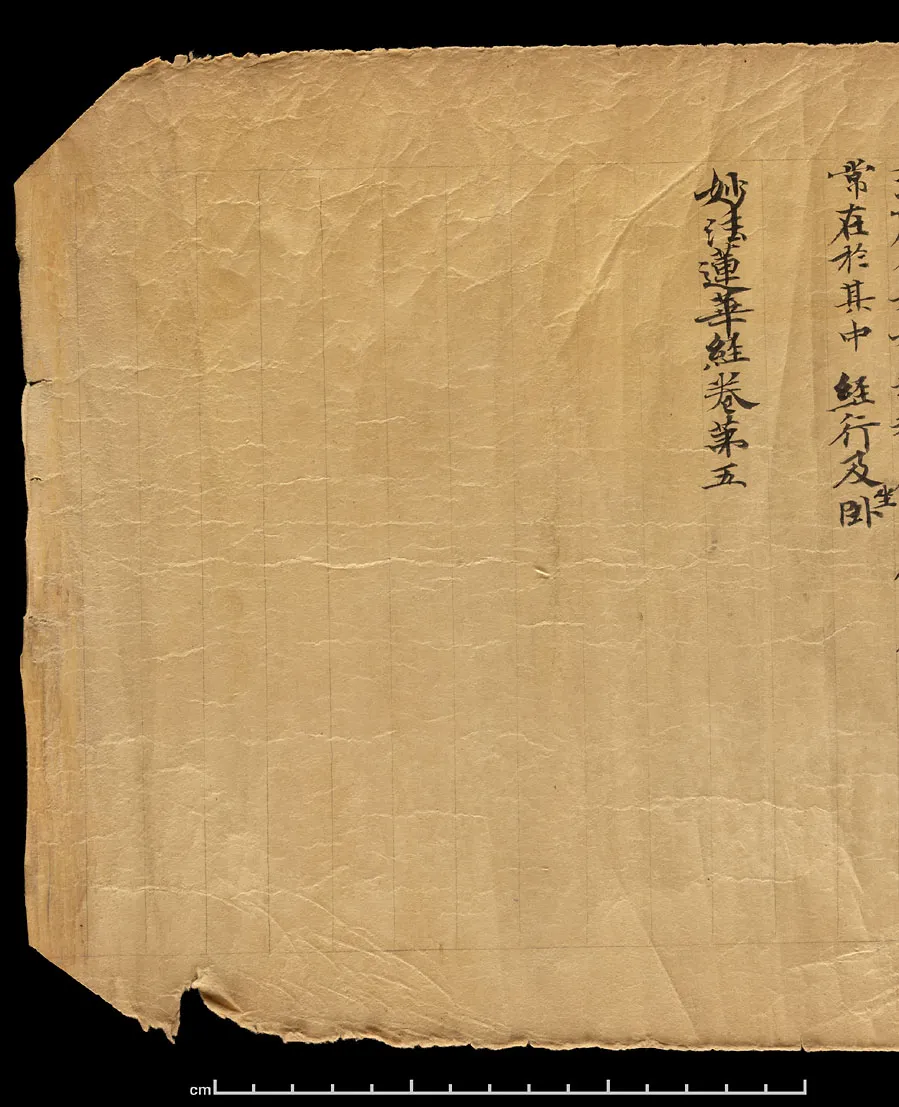 常在於其中 経行及坐卧
妙法蓮華経卷第五
cm